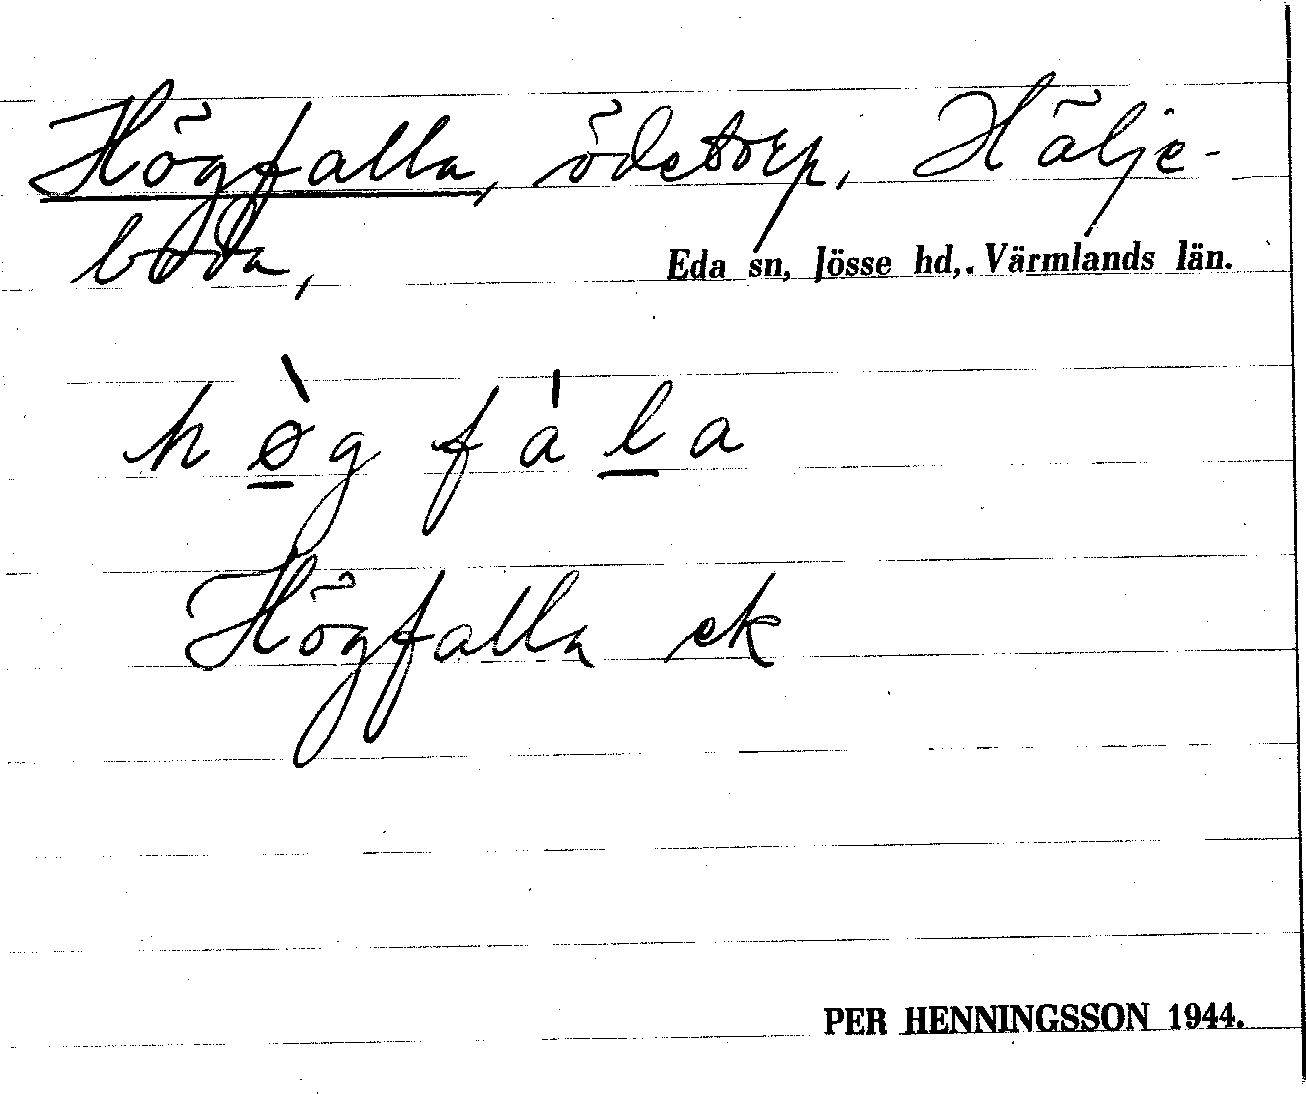 Högfalla, ödetorp, Hälje-
boda,
Eda sn, Jösse hd,. Värmlands län.
hø̀gfa̍la
Högfalla ek
PER HENNINGSSON 1944.